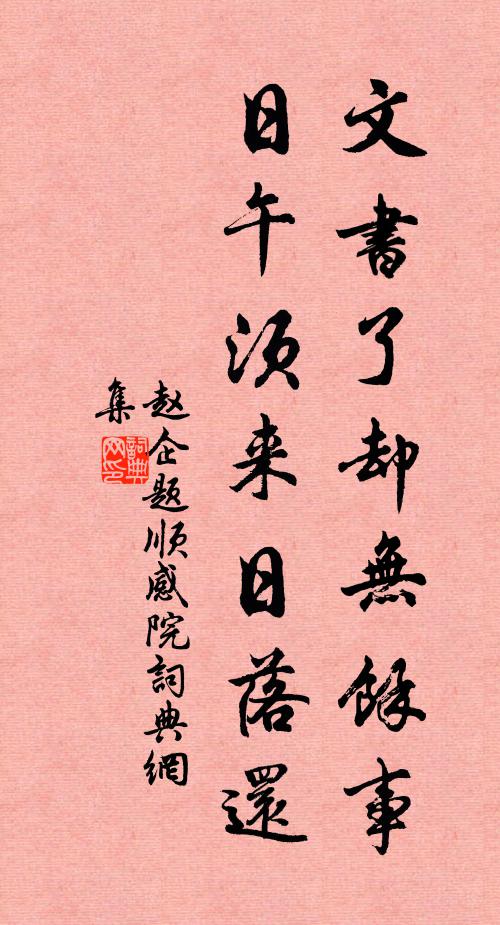 文書了却無餘事
日午须来日落還
赵企题順感院詞典網
集
詞典網印